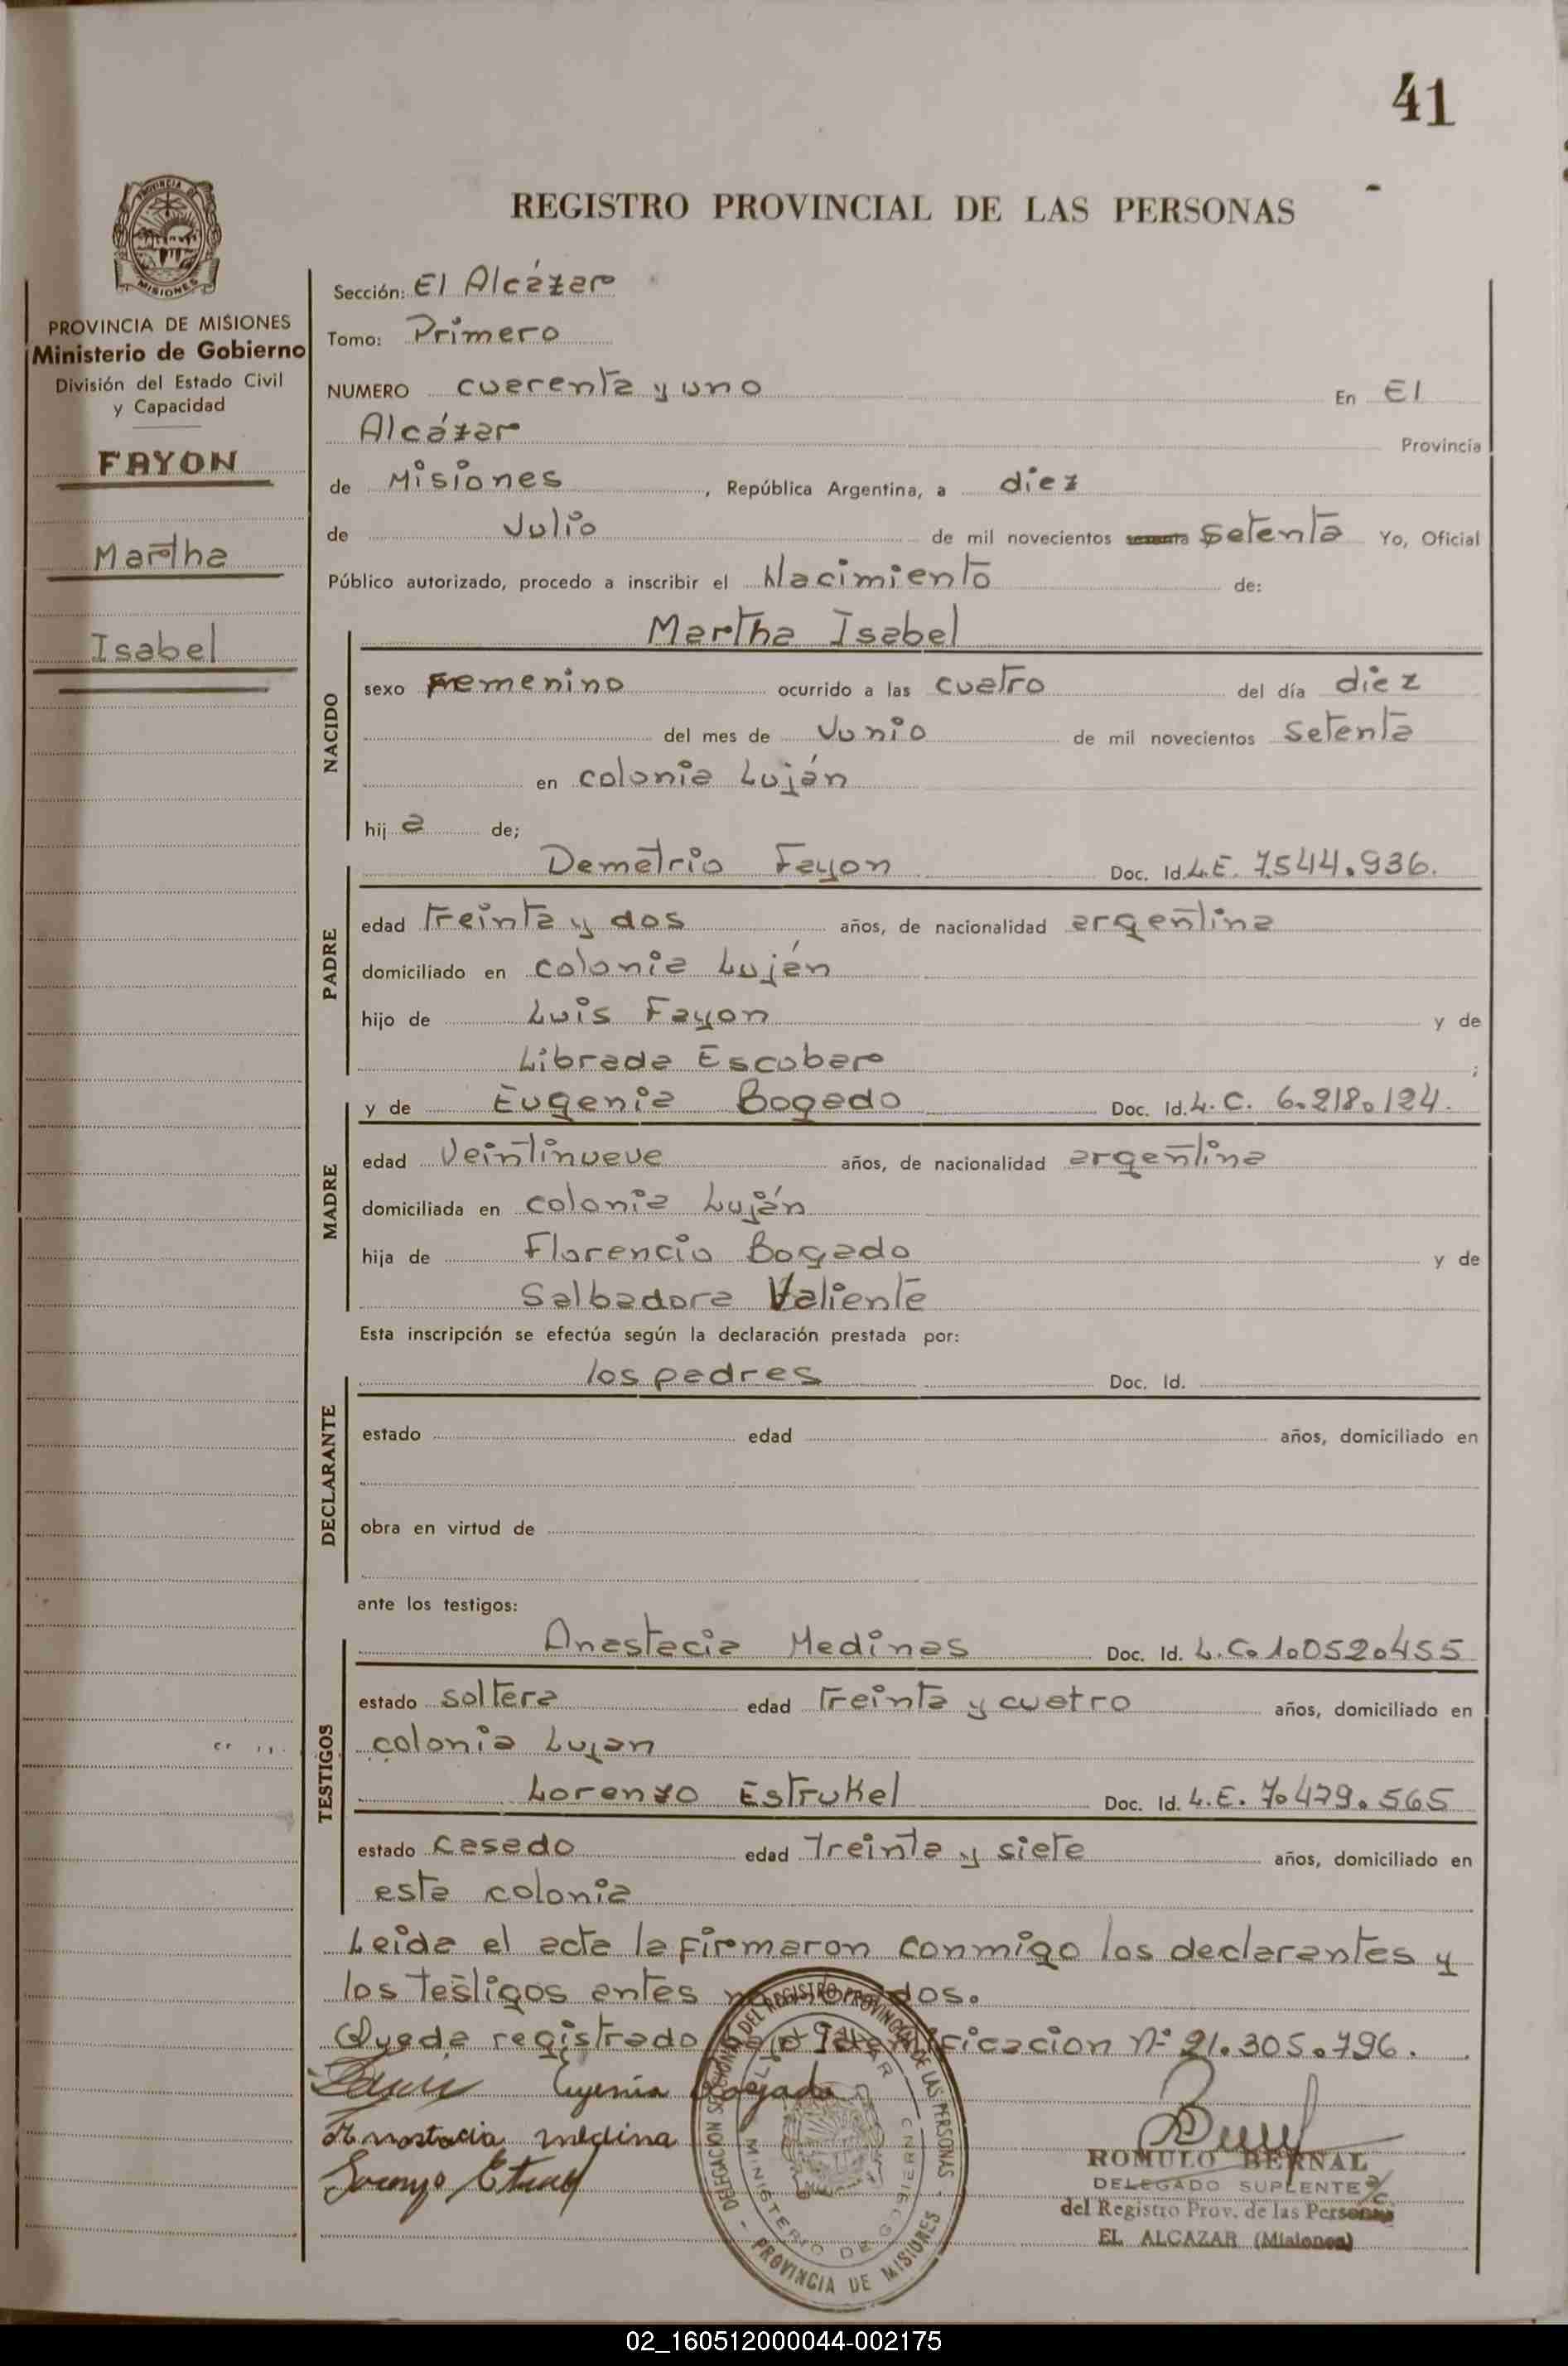 41
REGISTRO PROVINCIAL DE LAS PERSONAS
MISIONES
PROVINCIA DE MISIONES
Ministerio de Gobierno
División del Estado Civil
y Capacidad
FAYON
Martha
Isabel
Sección: El Alcázar
Tomo: Primero
NUMERO cuarenta y uno En El
Alcázar Provincia
de Misiones, República Argentina, a diez
de Julio de mil novecientos setenta Yo, Oficial
Público autorizado, procedo a inscribir el Nacimiento de:
NACIDO
Martha Isabel
sexo Femenino ocurrido a las cuatro del día diez
del mes de Junio de mil novecientos setenta
en colonia Luján
hij a de;
PADRE
Demetrio Fayon Doc. Id. L.E. 7.544.936.
edad treinta y dos años, de nacionalidad argentina
domiciliado en colonia Luján
hijo de Luis Fayon y de
Librada Escobar ;
MADRE
y de Eugenia Bogado Doc. Id. L.C. 6.218.124.
edad Veintinueve años, de nacionalidad argentina
domiciliada en colonia Luján
hija de Florencio Bogado y de
Salbadora Valiente
Esta inscripción se efectúa según la declaración prestada por:
DECLARANTE
los padres Doc. Id.
estado edad años, domiciliado en
obra en virtud de
ante los testigos:
TESTIGOS
Anastacia Medinas Doc. Id. L.C. 1.052.455
estado soltera edad treinta y cuatro años, domiciliado en
colonia Lujan
Lorenzo Estrukel Doc. Id. L.E. 7.479.565
estado casado edad treinta y siete años, domiciliado en
esta colonia
Leida el acta la firmaron conmigo los declarantes y
los testigos antes dos.
Queda registrado N° 21.305.796.
Eugenia Bogado
Anastacia medina
DELEGACION SECCIONAL DEL REGISTRO PROVINCIAL DE LAS PERSONAS - PROVINCIA DE MISIONES -
MINISTERIO DE GOBIERNO
ROMULO BERNAL
DELEGADO SUPLENTE a/c
del Registro Prov. de las Personas
EL ALCAZAR (Misiones)
02_160512000044-002175